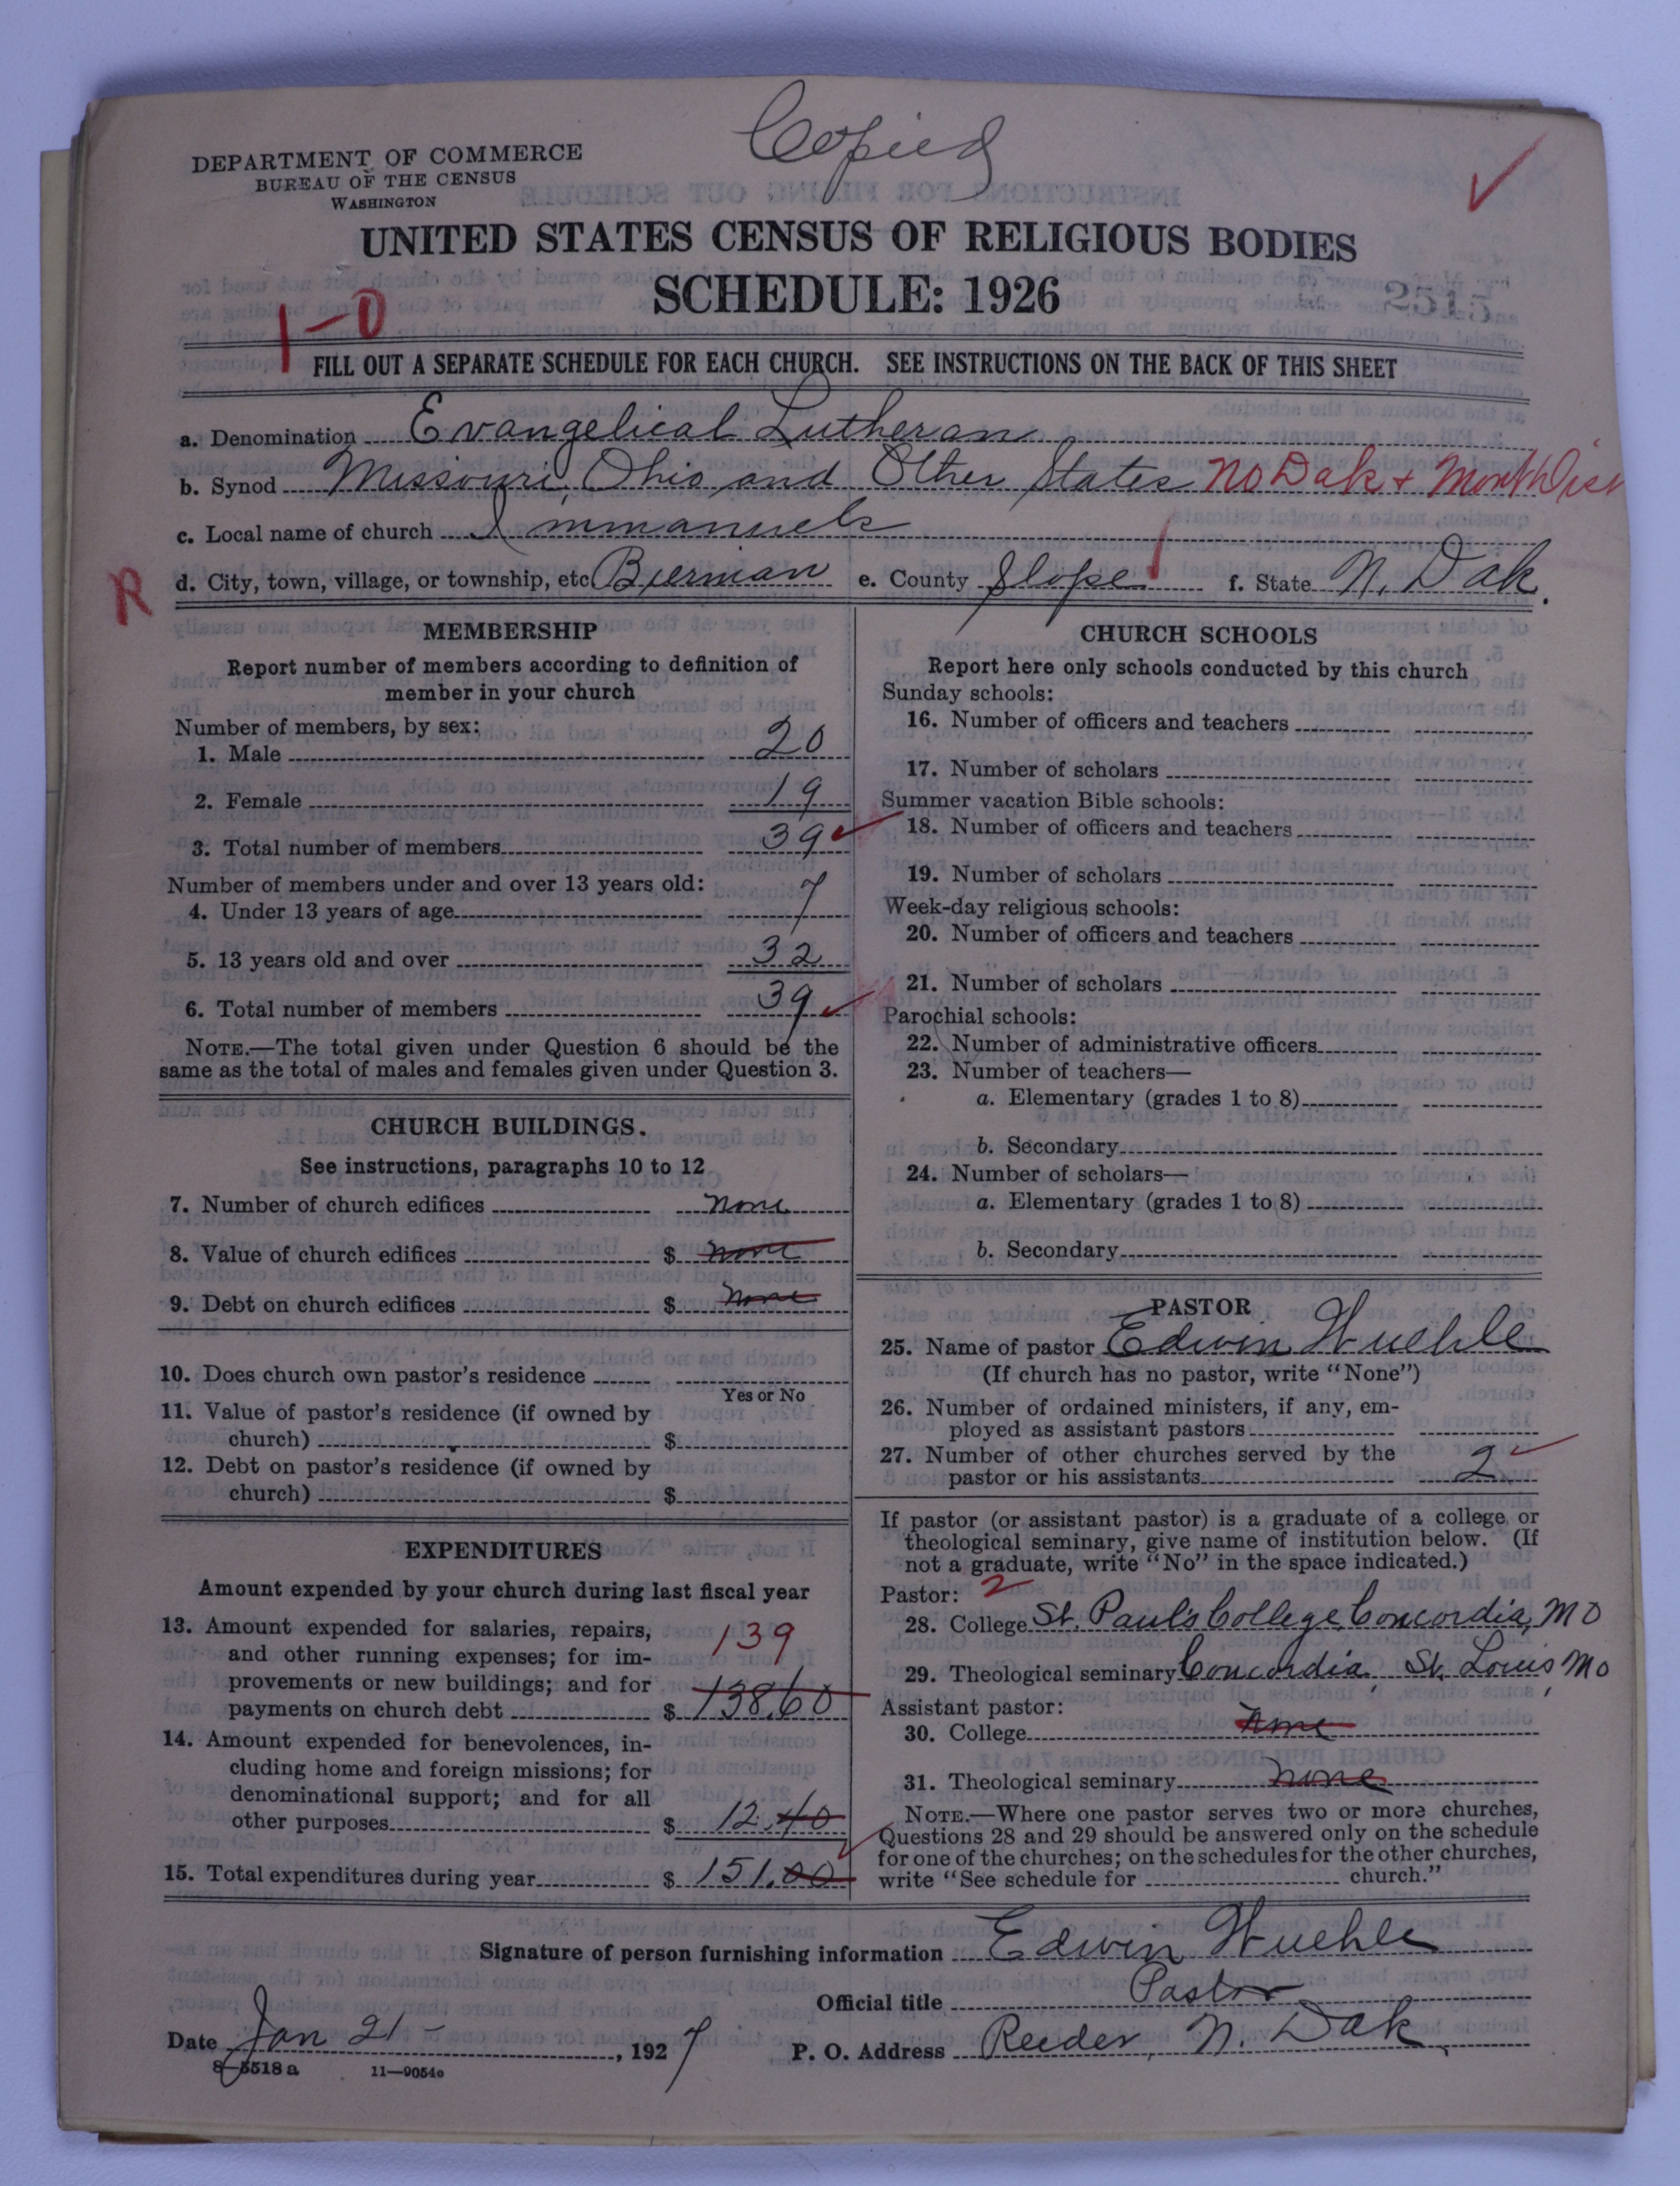 Copied
DEPARTMENT OF COMMERCE
BUREAU OF THE CENSUS
WASHINGTON
UNITED STATES CENSUS OF RELIGIOUS BODIES
SCHEDULE: 1926
1-0
FILL OUT A SEPARATE SCHEDULE FOR EACH CHURCH. SEE INSTRUCTIONS ON THE BACK OF THIS SHEET
a. Denomination Evangelical Lutheran
b. Synod Missouri, Ohio and Other States No Dak + Mont Dist
c. Local name of church Immanuels
R
d. City, town, village, or township, etc Bierman e. County Slope f. State N. Dak.
MEMBERSHIP
Report number of members according to definition of
member in your church
Number of members, by sex:
1. Male 20
2. Female 19
3. Total number of members 39
Number of members under and over 13 years old:
4. Under 13 years of age 7
5. 13 years old and over 32
6. Total number of members 39
NOTE.—The total given under Question 6 should be the
same as the total of males and females given under Question 3.
CHURCH BUILDINGS.
See instructions, paragraphs 10 to 12
7. Number of church edifices none
8. Value of church edifices $ none
9. Debt on church edifices $ none
10. Does church own pastor's residence
Yes or No
11. Value of pastor's residence (if owned by
church) $
12. Debt on pastor's residence (if owned by
church) $
EXPENDITURES
Amount expended by your church during last fiscal year
13. Amount expended for salaries, repairs,
and other running expenses; for im-
139
provements or new buildings; and for
payments on church debt $ 138.60
14. Amount expended for benevolences, in-
cluding home and foreign missions; for
denominational support; and for all
other purposes $ 12.40
15. Total expenditures during year $ 151.00
CHURCH SCHOOLS
Report here only schools conducted by this church
Sunday schools:
16. Number of officers and teachers
17. Number of scholars
Summer vacation Bible schools:
18. Number of officers and teachers
19. Number of scholars
Week-day religious schools:
20. Number of officers and teachers
21. Number of scholars
Parochial schools:
22. Number of administrative officers
23. Number of teachers—
a. Elementary (grades 1 to 8)
b. Secondary
24. Number of scholars—
a. Elementary (grades 1 to 8)
b. Secondary
PASTOR
25. Name of pastor Edwin Wuehle
(If church has no pastor, write "None")
26. Number of ordained ministers, if any, em-
ployed as assistant pastors
27. Number of other churches served by the
pastor or his assistants 2
If pastor (or assistant pastor) is a graduate of a college or
theological seminary, give name of institution below. (If
not a graduate, write "No" in the space indicated.)
Pastor: 2
28. College St. Paul's College, Concordia, Mo
29. Theological seminary Concordia, St. Louis, Mo
Assistant pastor:
30. College none
31. Theological seminary none
NOTE.—Where one pastor serves two or more churches,
Questions 28 and 29 should be answered only on the schedule
for one of the churches; on the schedules for the other churches,
write "See schedule for church."
Signature of person furnishing information Edwin Wuehle
Official title Pastor
Date Jan 21 - , 1927 P. O. Address Reeder, N. Dak.
8-5518 a 11-9054c